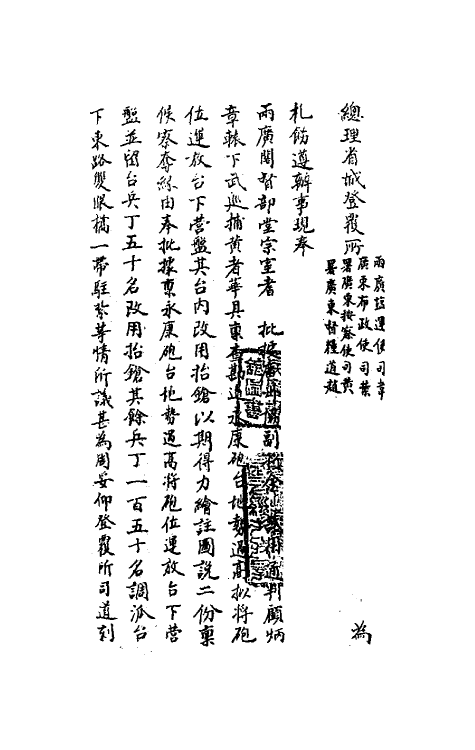 總理省城登覆所
兩廣鹽運使司韋
廣東布政使司葉
署廣東按察使司黃
署廣東督糧道趙
為
札飭遵辦事現奉
兩廣閣督部堂宗室耆 批據 副 通判顧炳
章轅下武巡捕黃者華具稟查勘過永康砲台地勢過高擬將砲
位運放台下營盤其台內改用抬鎗以期得力繪註圖說二份稟
候察奪緣由奉批據稟永康砲台地勢過高將砲位運放台下營
盤並留台兵丁五十名改用抬鎗其餘兵丁一百五十名調派台
下東路雙眼橋一帶駐紮等情所議甚為周妥仰登覆所司道刻